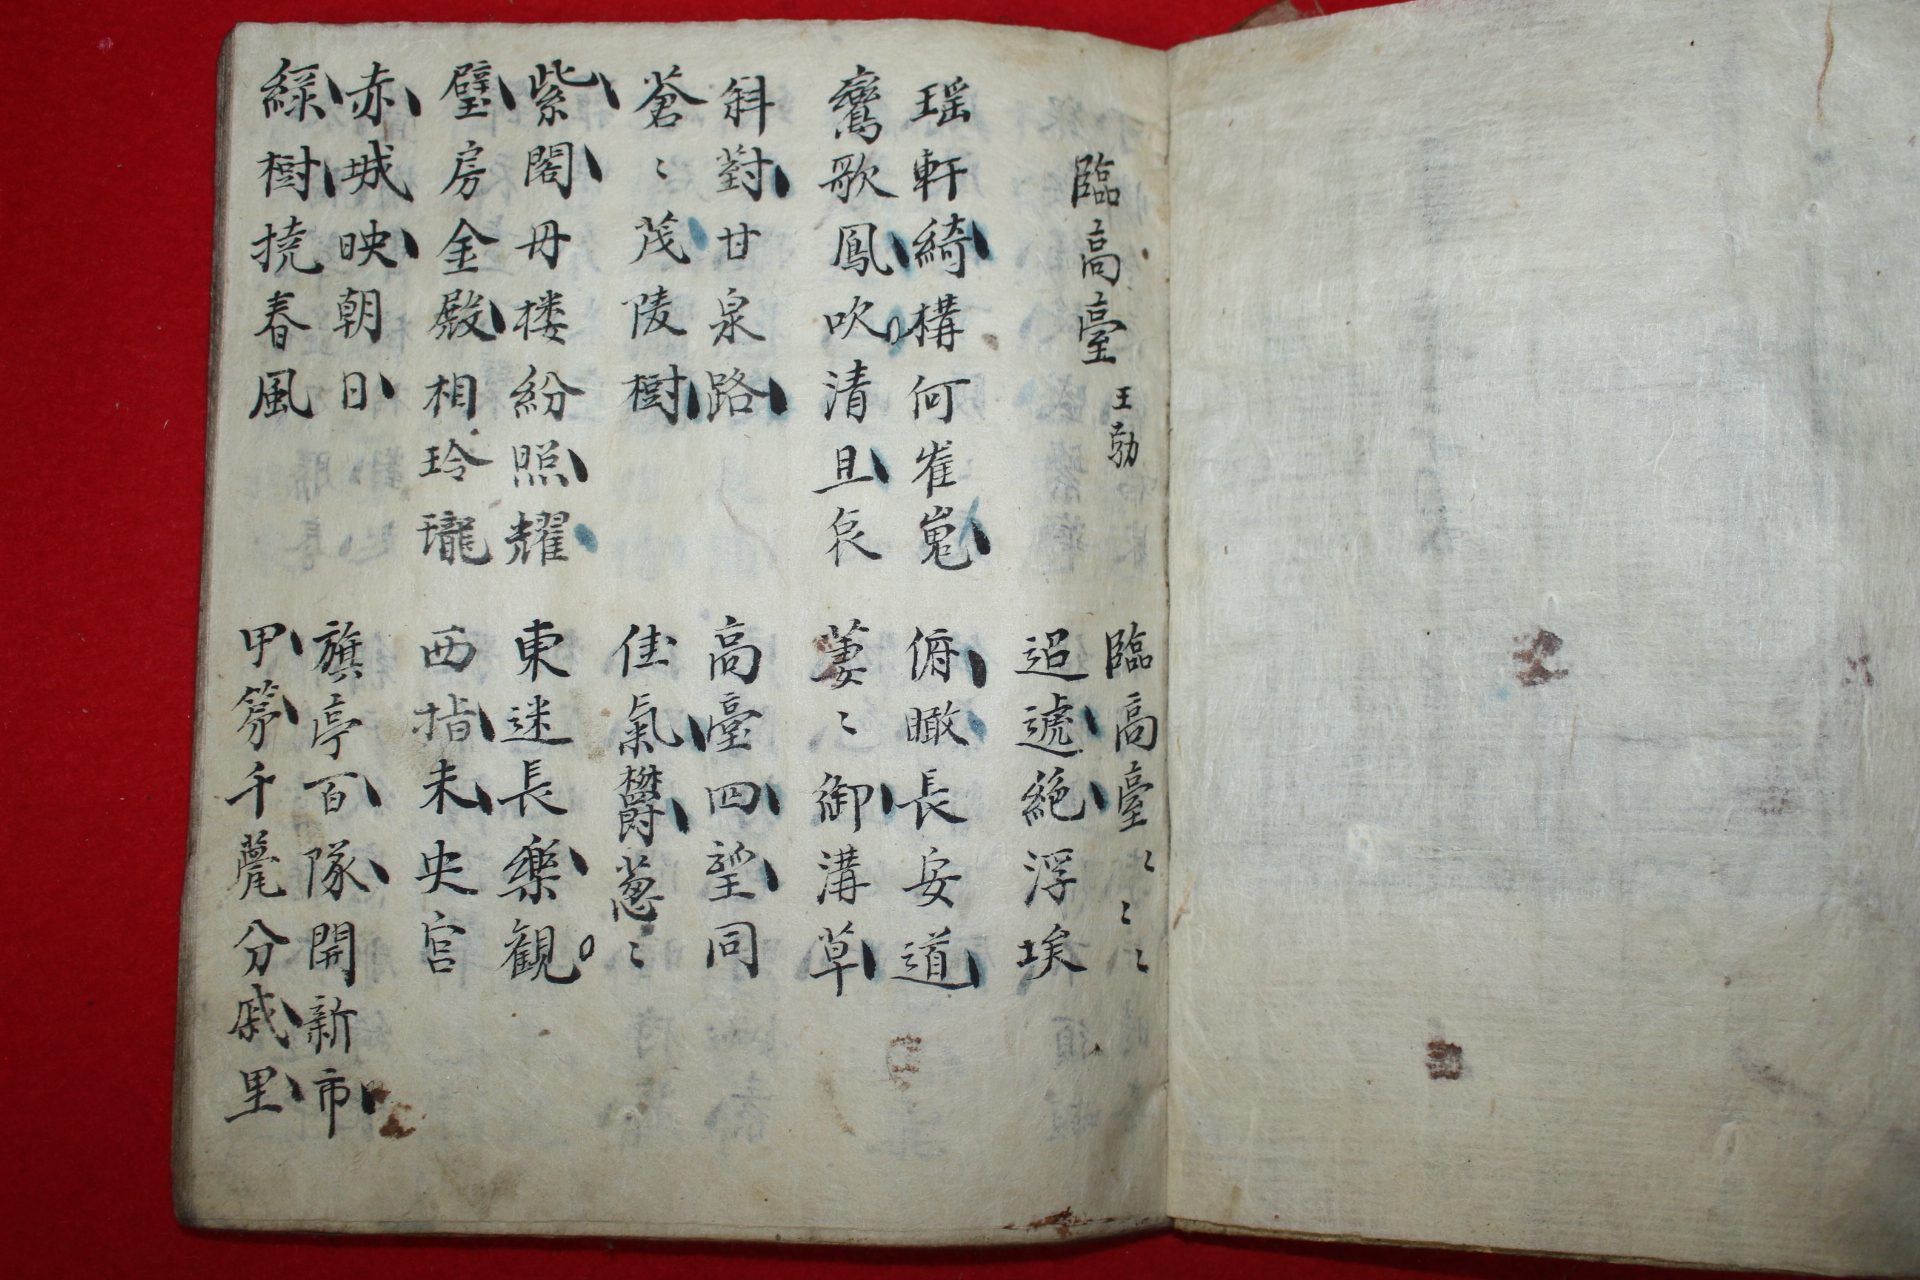 臨高臺 王勃
臨高臺〻〻〻
迢遞絶浮埃
瑶軒綺構何崔嵬
鸞歌鳳吹清且哀
俯瞰長安道
萋〻御溝草
斜對甘泉路
蒼〻茂陵樹
高臺四望同
佳氣欝葱〻
紫閣丹楼紛照耀
璧房金殿相玲瓏
東迷長樂観
西指未央宮
赤城映朝日
緑樹撓春風
旗亭百隊開新市
甲第千甍分戚里